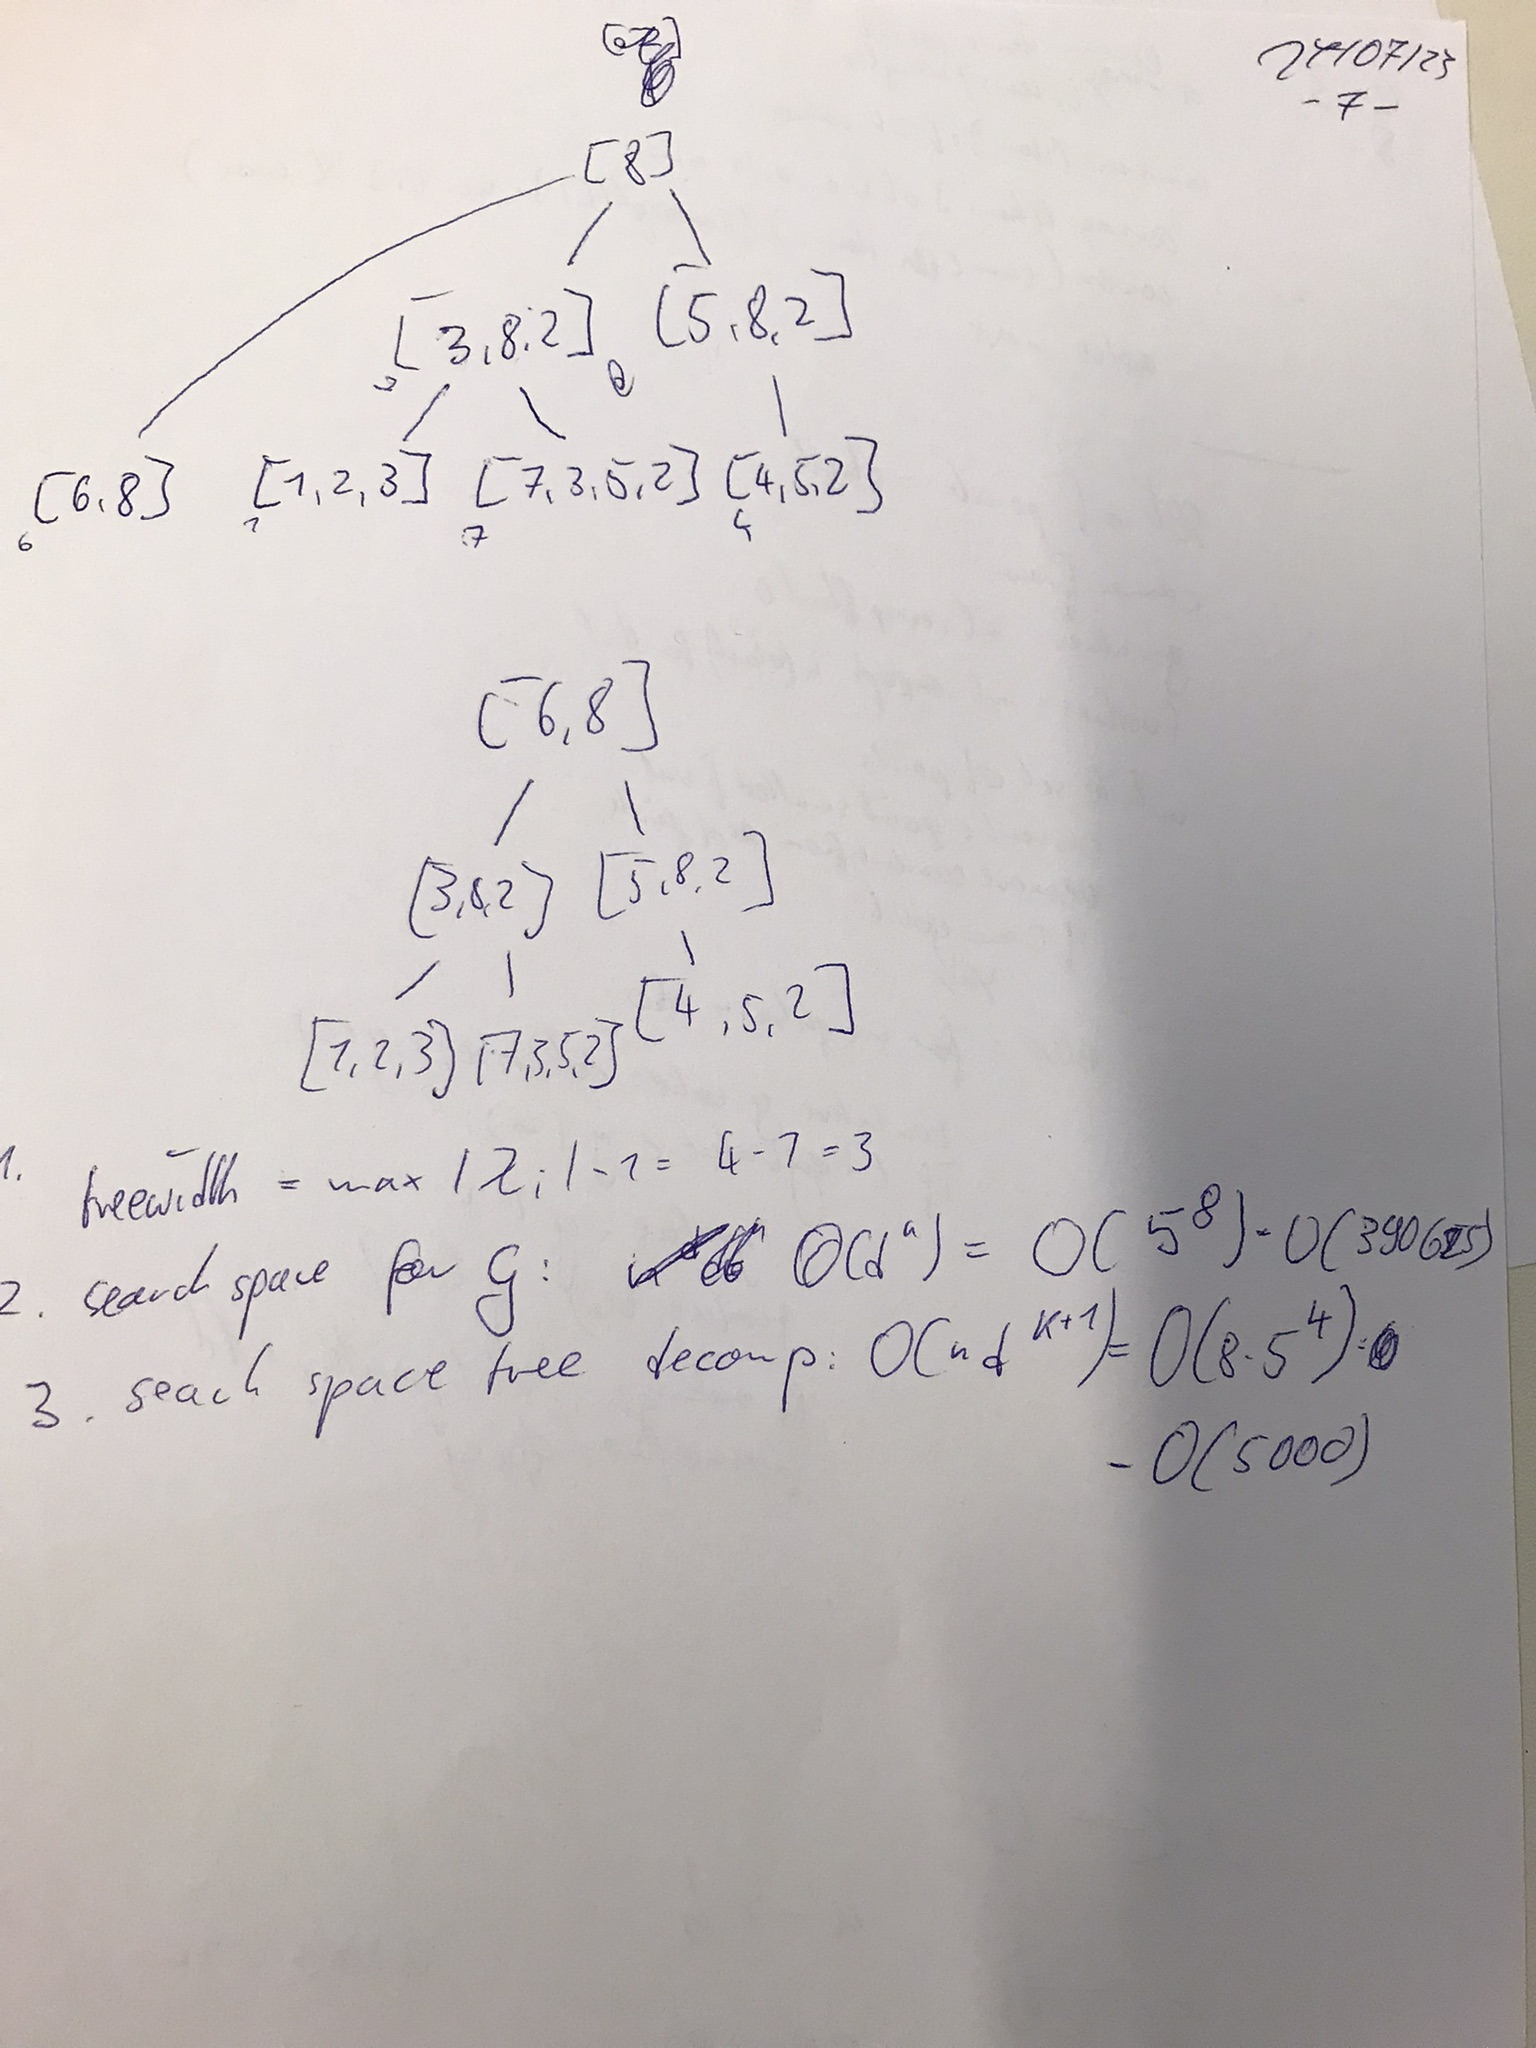 24/07/23
- 7 -
[8]
[3,8,2] [5,8,2]
[6,8] [1,2,3] [7,3,5,2] [4,5,2]
6 1 7 4
[6,8]
[3,8,2] [5,8,2]
[1,2,3] [7,3,5,2] [4,5,2]
1. treewidth = max |Z_i| - 1 = 4 - 1 = 3
2. search space for G: O(d^n) = O(5^8) = O(390625)
3. seach space tree decomp: O(n d^{k+1}) = O(8·5^4) =
= O(5000)